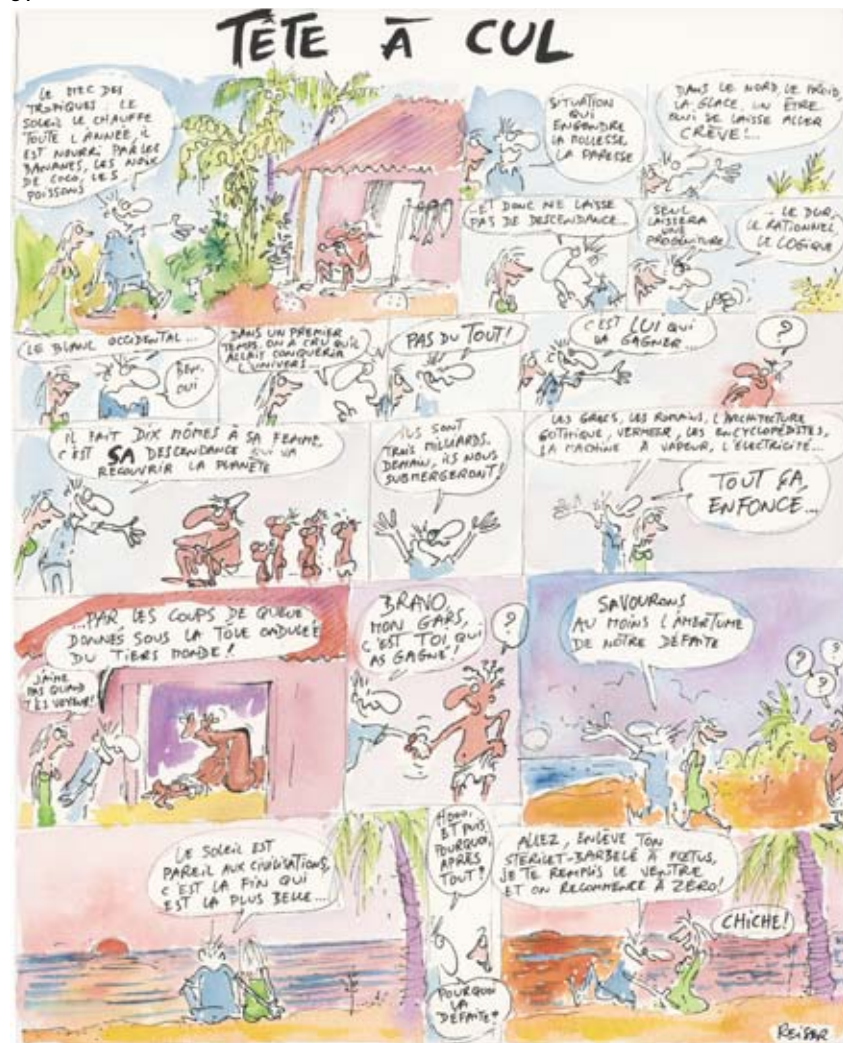 TÊTE À CUL
LE MEC DES
TROPIQUES : LE
SOLEIL LE CHAUFFE
TOUTE L'ANNÉE, IL
EST NOURRI PAR LES
BANANES, LES NOIX
DE COCO, LES
POISSONS
SITUATION
QUI
ENGENDRE
LA MOLLESSE
LA PARESSE
DANS LE NORD, LE FROID,
LA GLACE, UN ÊTRE
QUI SE LAISSE ALLER
CRÈVE !...
...ET DONC NE LAISSE
PAS DE DESCENDANCE...
SEUL
LAISSERA
UNE
PROGÉNITURE
... LE DUR,
LE RATIONNEL
LE LOGIQUE
LE BLANC OCCIDENTAL...
BEN,
OUI
DANS UN PREMIER
TEMPS, ON A CRU QU'IL
ALLAIT CONQUÉRIR
L'UNIVERS...
PAS DU TOUT !
C'EST LUI QUI
VA GAGNER...
?
IL FAIT DIX MÔMES À SA FEMME,
C'EST SA DESCENDANCE QUI VA
RECOUVRIR LA PLANÈTE
ILS SONT
TROIS MILLIARDS.
DEMAIN, ILS NOUS
SUBMERGERONT !
LES GRECS, LES ROMAINS, L'ARCHITECTURE
GOTHIQUE, VERMEER, LES ENCYCLOPÉDISTES,
LA MACHINE À VAPEUR, L'ÉLECTRICITÉ...
TOUT ÇA,
ENFONCÉ...
...PAR LES COUPS DE QUEUE
DONNÉS SOUS LA TÔLE ONDULÉE
DU TIERS MONDE !
J'AIME
PAS QUAND
T'ES VOYEUR !
BRAVO,
MON GARS,
C'EST TOI QUI
AS GAGNÉ !
?
SAVOURONS
AU MOINS L'AMERTUME
DE NÔTRE DÉFAITE
? ? ?
LE SOLEIL EST
PAREIL AUX CIVILISATIONS,
C'EST LA FIN QUI
EST LA PLUS BELLE...
ET PUIS
POURQUOI,
APRÈS
TOUT ?
POURQUOI
LA
DÉFAITE ?
ALLEZ, ENLÈVE TON
STÉRILET-BARBELÉ À FŒTUS,
JE TE REMPLIS LE VENTRE
ET ON RECOMMENCE À ZÉRO !
CHICHE !
REISER